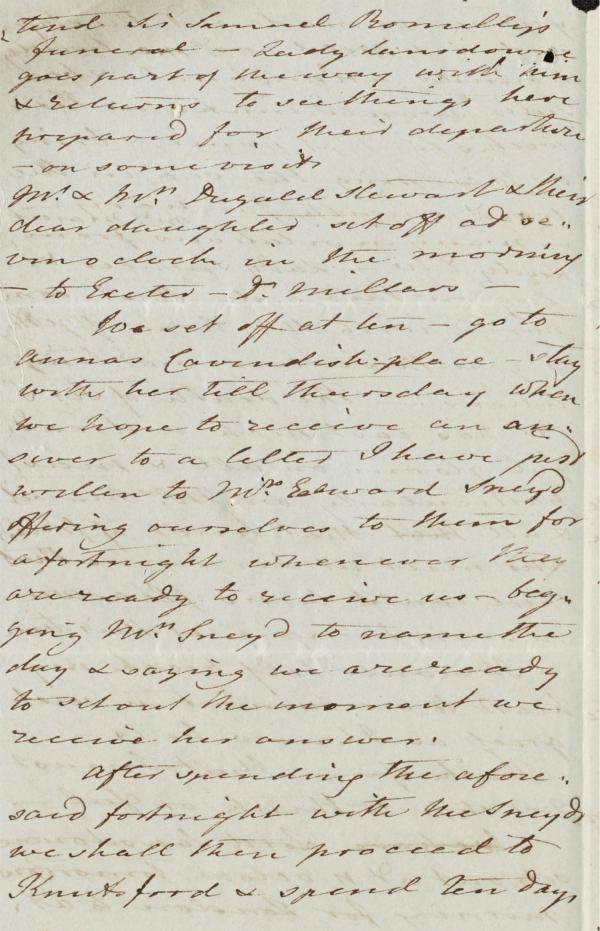 tend Sir Samuel Romilly's
funeral – Lady Lansdowne
goes part of the way with him
& returns to see things here
prepared for their departure
– on some visits
Mr. & Mrs. Dugald Stewart & their
dear daughter set off at se..
ven o clock in the morning
– to Exeter – Dr. Millars –
We set off at ten – go to
Annas Cavendish-place – stay
with her till thursday when
we hope to receive an an-
swer to a letter I have just
written to Mrs. Edward Sneyd
offering ourselves to them for
a fortnight whenever they
are ready to receive us – beg-
ging Mrs. Sneyd to name the
day & saying we are ready
to set out the moment we
receive her answer.
After spending the afore..
said fortnight with the Sneyds
we shall then proceed to
Knutsford & spend ten days